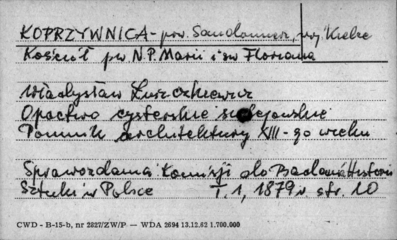 KOPRZYWNICA - pow. Sandomierz, woj. Kielce
Kościół pw N.P. Marii i św Floriana
Władysław Łuszczkiewicz
Opactwo cysterskie sulejowskie
Pomnik architektury XIII-go wieku
Sprawozdania Komisji do Badania Historii
Sztuki w Polsce T. 1, 1879 r. str. 10
CWD - B-15-b, nr 2827/ZW/P — WDA 2694 13.12.62 1.700.000